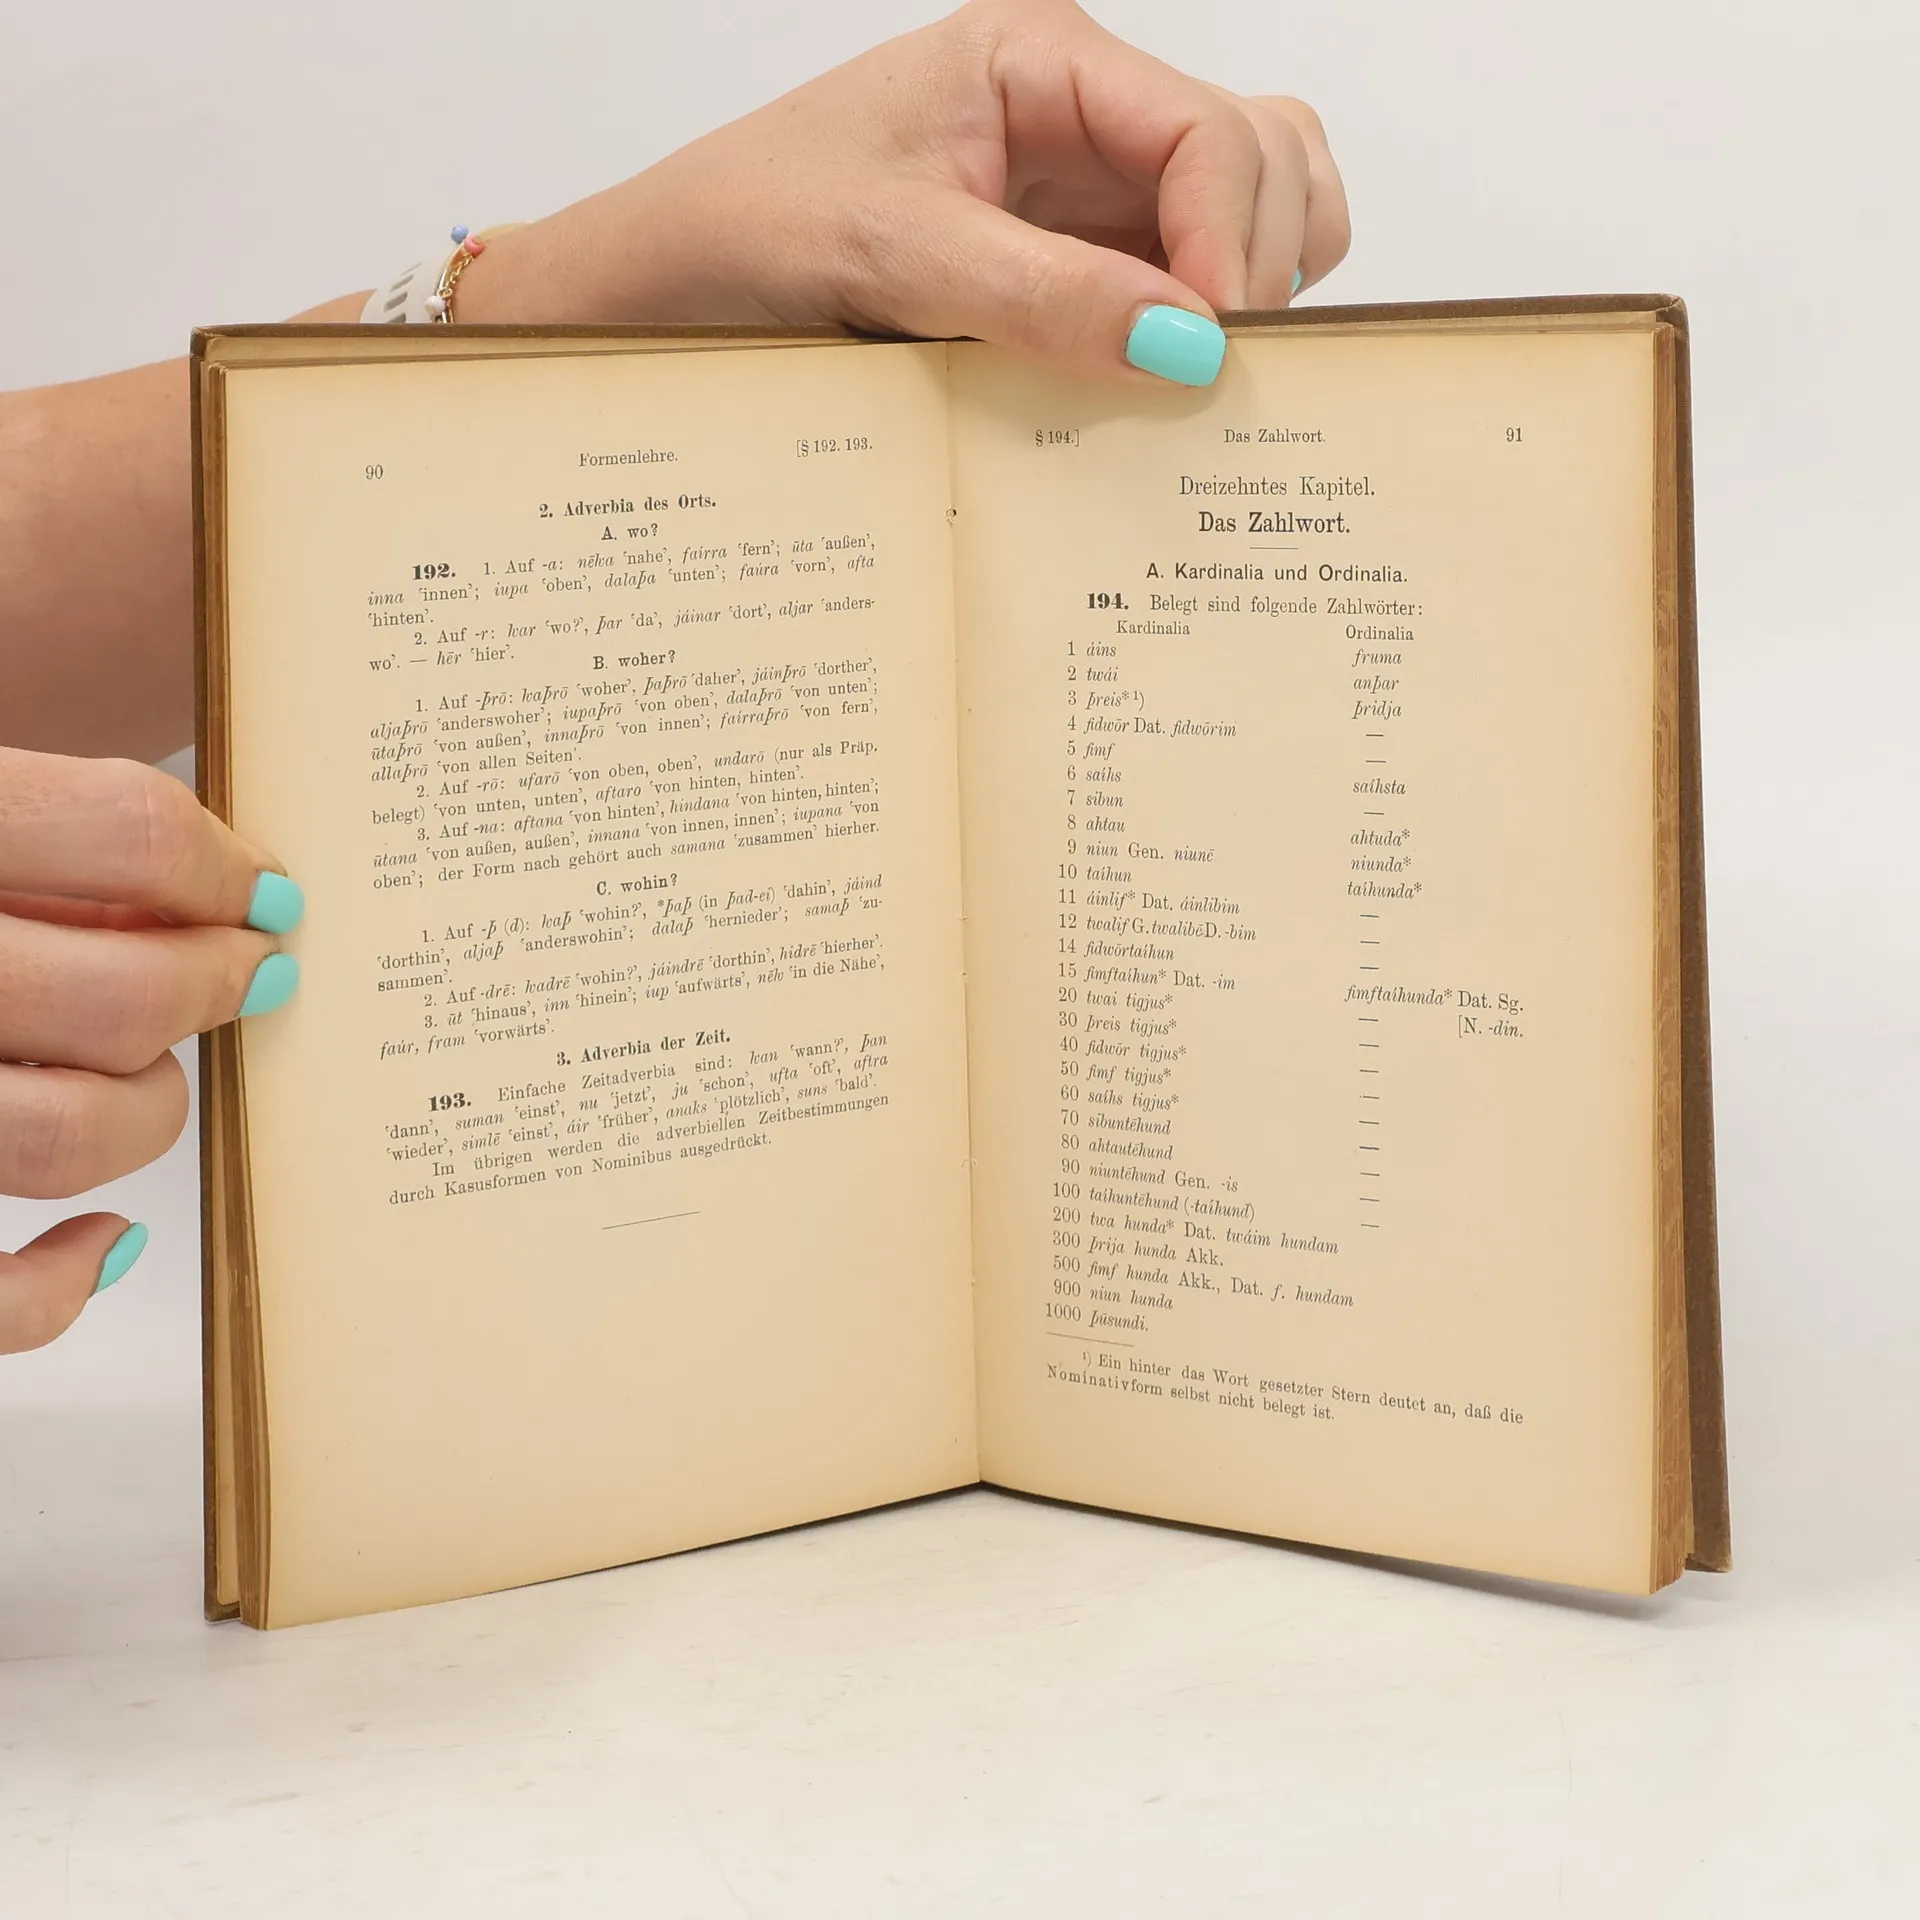 90 Formenlehre. [§ 192. 193.
2. Adverbia des Orts.
A. wo?
192. 1. Auf -a: nēƕa ‘nahe’, faírra ‘fern’; ūta ‘außen’,
inna ‘innen’; iupa ‘oben’, dalaþa ‘unten’; faúra ‘vorn’, afta
‘hinten’.
2. Auf -r: ƕar ‘wo?’, þar ‘da’, jáinar ‘dort’, aljar ‘anders-
wo’. — hēr ‘hier’.
B. woher?
1. Auf -þrō: ƕaþrō ‘woher’, þaþrō ‘daher’, jáinþrō ‘dorther’,
aljaþrō ‘anderswoher’; iupaþrō ‘von oben’, dalaþrō ‘von unten’;
ūtaþrō ‘von außen’, innaþrō ‘von innen’; faírraþrō ‘von fern’,
allaþrō ‘von allen Seiten’.
2. Auf -rō: ufarō ‘von oben, oben’, undarō (nur als Präp.
belegt) ‘von unten, unten’, aftaro ‘von hinten, hinten’.
3. Auf -na: aftana ‘von hinten’, hindana ‘von hinten, hinten’;
ūtana ‘von außen, außen’, innana ‘von innen, innen’; iupana ‘von
oben’; der Form nach gehört auch samana ‘zusammen’ hierher.
C. wohin?
1. Auf -þ (d): ƕaþ ‘wohin?’, *þaþ (in þad-ei) ‘dahin’, jáind
‘dorthin’, aljaþ ‘anderswohin’; dalaþ ‘hernieder’; samaþ ‘zu-
sammen’.
2. Auf -drē: ƕadrē ‘wohin?’, jáindrē ‘dorthin’, hidrē ‘hierher’.
3. ūt ‘hinaus’, inn ‘hinein’; iup ‘aufwärts’, nēƕ ‘in die Nähe’,
faúr, fram ‘vorwärts’.
3. Adverbia der Zeit.
193. Einfache Zeitadverbia sind: ƕan ‘wann?’, þan
‘dann’, suman ‘einst’, nu ‘jetzt’, ju ‘schon’, ufta ‘oft’, aftra
‘wieder’, simlē ‘einst’, áir ‘früher’, anaks ‘plötzlich’, suns ‘bald’.
Im übrigen werden die adverbiellen Zeitbestimmungen
durch Kasusformen von Nominibus ausgedrückt.
§ 194.] Das Zahlwort. 91
Dreizehntes Kapitel.
Das Zahlwort.
A. Kardinalia und Ordinalia.
194. Belegt sind folgende Zahlwörter:
Kardinalia Ordinalia
1 áins fruma
2 twái anþar
3 þreis* ¹) þridja
4 fidwōr Dat. fidwōrim —
5 fimf —
6 saíhs saíhsta
7 sibun —
8 ahtau ahtuda*
9 niun Gen. niunē niunda*
10 taíhun taíhunda*
11 áinlif* Dat. áinlibim —
12 twalif G. twalibē D. -bim —
14 fidwōrtaíhun —
15 fimftaíhun* Dat. -im fimftaíhunda* Dat. Sg.
20 twai tigjus* — [N. -din.
30 þreis tigjus* —
40 fidwōr tigjus* —
50 fimf tigjus* —
60 saíhs tigjus* —
70 sibuntēhund —
80 ahtautēhund —
90 niuntēhund Gen. -is —
100 taíhuntēhund (-taíhund) —
200 twa hunda* Dat. twáim hundam
300 þrija hunda Akk.
500 fimf hunda Akk., Dat. f. hundam
900 niun hunda
1000 þūsundi.
¹) Ein hinter das Wort gesetzter Stern deutet an, daß die
Nominativform selbst nicht belegt ist.